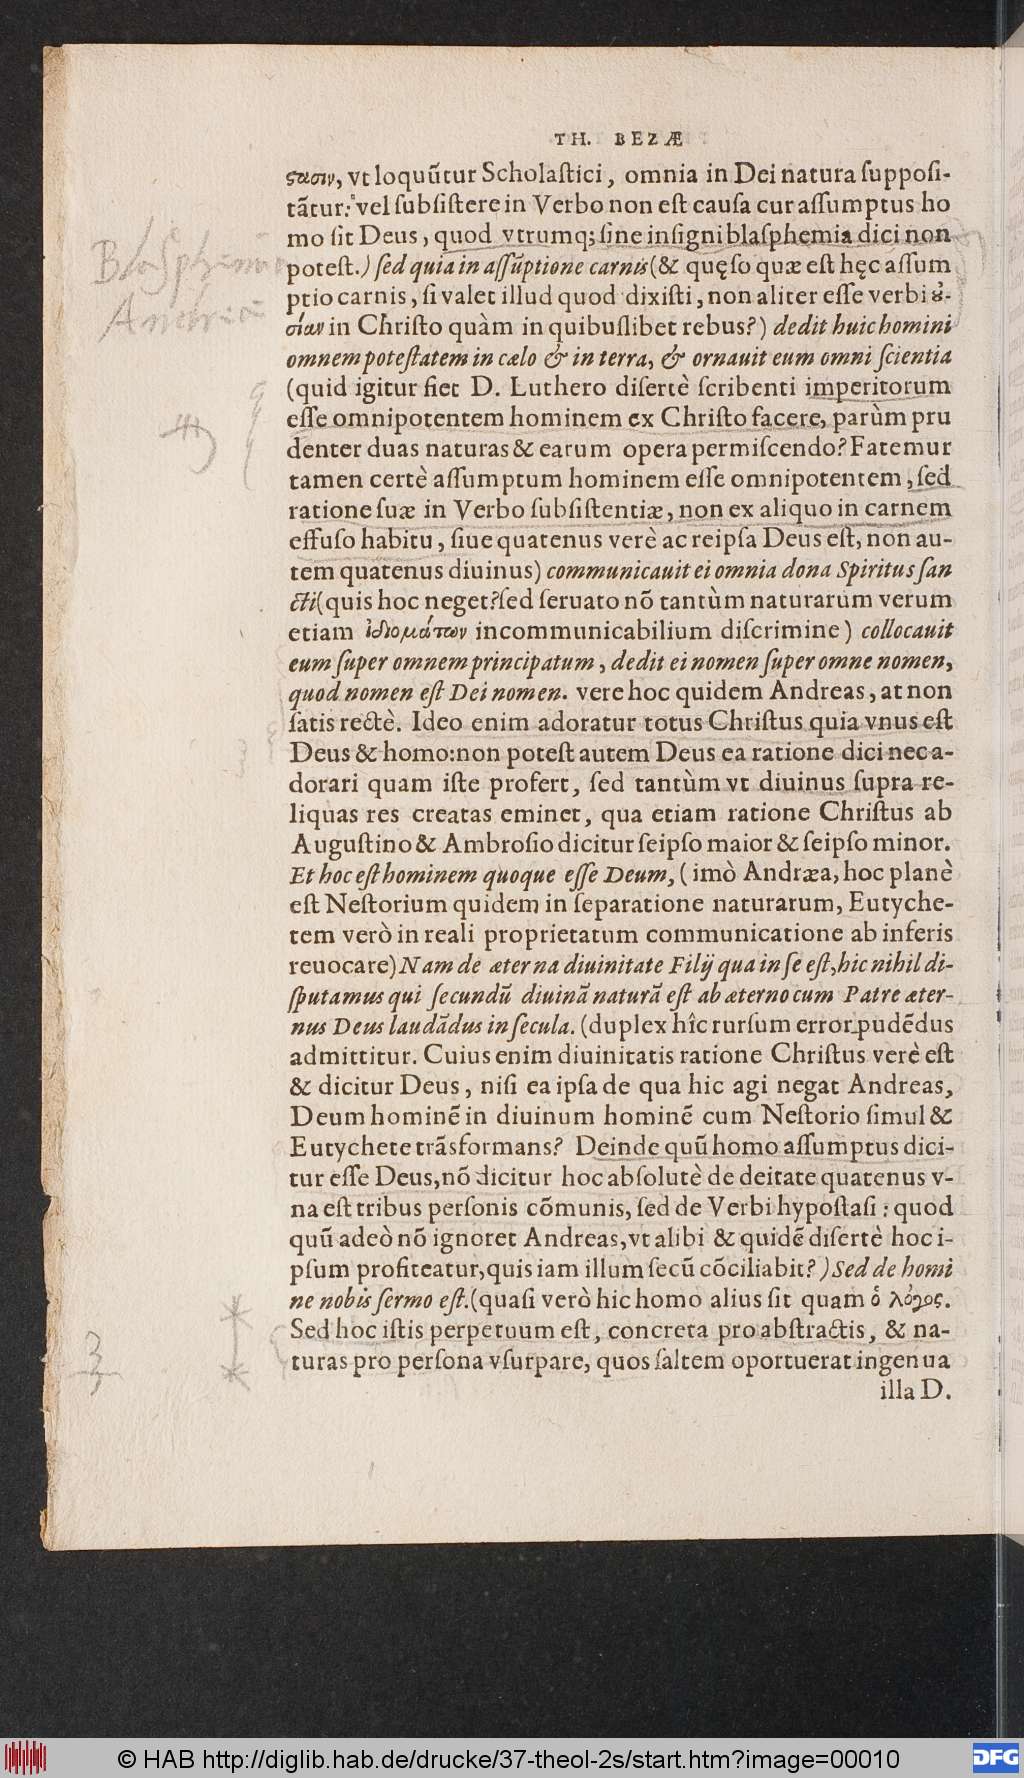 TH. BEZÆ
ςασιν, vt loquũtur Scholaſtici, omnia in Dei natura ſuppoſi-
tãtur: vel ſubſiſtere in Verbo non eſt cauſa cur aſſumptus ho
mo ſit Deus, quod vtrumq; ſine inſigni blaſphemia dici non
poteſt.) ſed quia in aſſũptione carnis (& quęſo quæ eſt hęc aſſum
ptio carnis, ſi valet illud quod dixiſti, non aliter eſſe verbi ȣ̓-
σίαν in Chriſto quàm in quibuſlibet rebus?) dedit huic homini
omnem poteſtatem in cælo & in terra, & ornauit eum omni ſcientia
(quid igitur fiet D. Luthero diſertè ſcribenti imperitorum
eſſe omnipotentem hominem ex Chriſto facere, parùm pru
denter duas naturas & earum opera permiſcendo? Fatemur
tamen certè aſſumptum hominem eſſe omnipotentem, ſed
ratione ſuæ in Verbo ſubſiſtentiæ, non ex aliquo in carnem
effuſo habitu, ſiue quatenus verè ac reipſa Deus eſt, non au-
tem quatenus diuinus) communicauit ei omnia dona Spiritus ſan
cti (quis hoc neget? ſed ſeruato nõ tantùm naturarum verum
etiam ἰδιομάτων incommunicabilium diſcrimine) collocauit
eum ſuper omnem principatum, dedit ei nomen ſuper omne nomen,
quod nomen eſt Dei nomen. vere hoc quidem Andreas, at non
ſatis rectè. Ideo enim adoratur totus Chriſtus quia vnus eſt
Deus & homo: non poteſt autem Deus ea ratione dici nec a-
dorari quam iſte profert, ſed tantùm vt diuinus ſupra re-
liquas res creatas eminet, qua etiam ratione Chriſtus ab
Auguſtino & Ambroſio dicitur ſeipſo maior & ſeipſo minor.
Et hoc eſt hominem quoque eſſe Deum, (imò Andræa, hoc planè
eſt Neſtorium quidem in ſeparatione naturarum, Eutyche-
tem verò in reali proprietatum communicatione ab inferis
reuocare) Nam de æterna diuinitate Filij qua in ſe eſt, hic nihil di-
ſputamus qui ſecundũ diuinã naturã eſt ab æterno cum Patre æter-
nus Deus laudãdus in ſecula. (duplex hîc rurſum error pudẽdus
admittitur. Cuius enim diuinitatis ratione Chriſtus verè eſt
& dicitur Deus, niſi ea ipſa de qua hic agi negat Andreas,
Deum hominẽ in diuinum hominẽ cum Neſtorio ſimul &
Eutychete trãsformans? Deinde quũ homo aſſumptus dici-
tur eſſe Deus, nõ dicitur hoc abſolutè de deitate quatenus v-
na eſt tribus perſonis cõmunis, ſed de Verbi hypoſtaſi: quod
quũ adeò nõ ignoret Andreas, vt alibi & quidẽ diſertè hoc i-
pſum profiteatur, quis iam illum ſecũ cõciliabit?) Sed de homi
ne nobis ſermo eſt. (quaſi verò hic homo alius ſit quam ὁ λόγος.
Sed hoc iſtis perpetuum eſt, concreta pro abſtractis, & na-
turas pro perſona vſurpare, quos ſaltem oportuerat ingenua
illa D.
© HAB http://diglib.hab.de/drucke/37-theol-2s/start.htm?image=00010
DFG